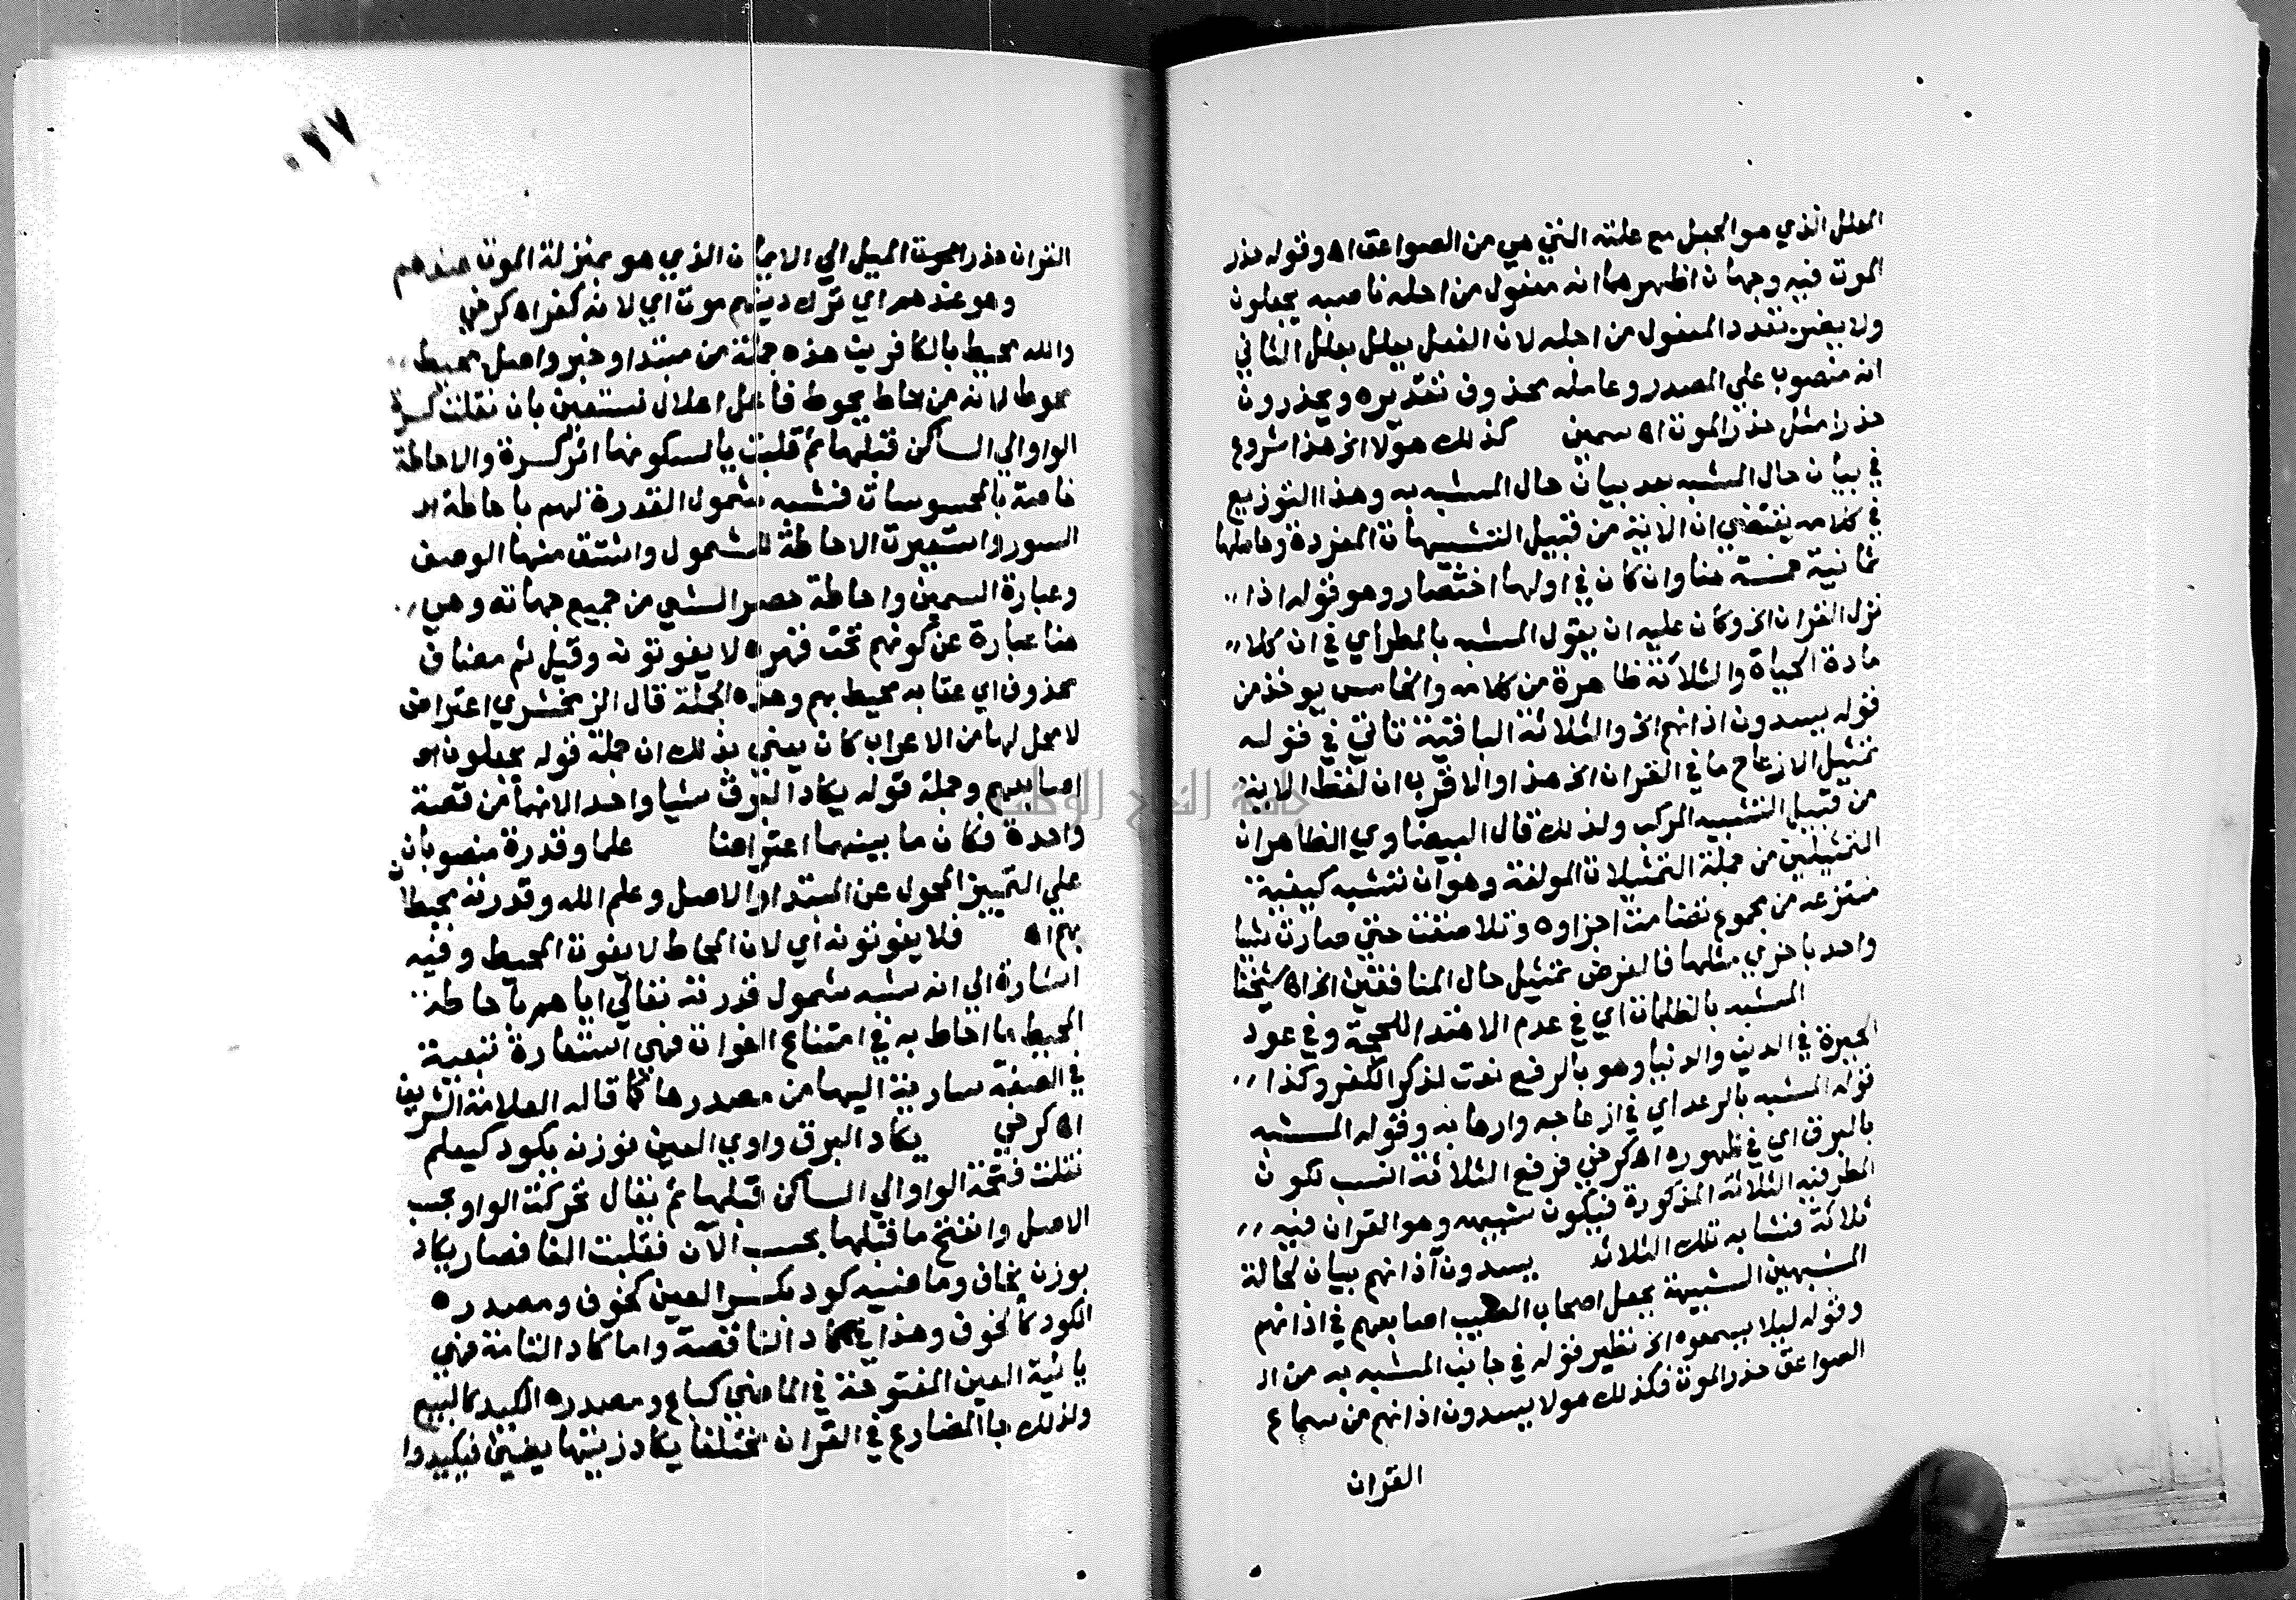 المعلل الذي هو الجعل مع علته التي هي من الصواعق اه وقوله حذر
الموت فيه وجهان اظهرهما انه مفعول من اجله ناصبه يجعلون
ولا يضر تعدد المفعول من اجله لان الفعل يعلل بعلل الثاني
انه منصوب علي المصدر وعامله محذوف تقديره ويحذرون
حذرا مثل حذر الموت اه سمين كذلك هولا الخ هذا شروع
في بيان حال المشبه بعد بيان حال المشبه به وهذا التوزيع
في كلامه يقتضي ان الاية من قبيل التشبيهات المفردة وحاصلها
ثمانية خمسة هنا وان كان في اولها اختصار وهو قوله اذا
نزل القران الخ وكان عليه ان يقول المشبه بالمطر اي في ان كلا
مادة الحياة والثلاثة ظاهرة من كلامه والخامس يوخذ من
قوله يسدون اذانهم الخ والثلاثة الباقية تاتي في قوله
تمثيل الازعاج ما في القران الخ هذا والاقرب ان لفظ الاية
من قبيل التشبيه المركب ولذلك قال البيضاوي الظاهر ان
التمثيلين من جملة التمثيلات المولفة وهو ان تشبه كيفية
منتزعه من مجموع تضامت اجزاوه وتلاصقت حتي صارت شيا
واحد باخري مثلها فالغرض تمثيل حال المنافقين الخ اه شيخنا
المشبه بالظلمات اي في عدم الاهتدا للمحجة وفي عود
الحيرة في الدين والدنيا وهو بالرفع نعت لذكر الكفر وكذا
قوله المشبه بالرعد اي في ازعاجه وارهابه وقوله المشبه
بالبرق اي في ظهوره اه كرخي فرفع الثلاثة انسب لكون
الظرفيه الثلاثة المذكورة فيكون شبيهه وهو القران فيه
ثلاثة فتشابه تلك الثلاثه يسدون آذانهم بيان لحالة
المشبهين الشبيهة بجعل اصحاب الصيب اصابعهم في اذانهم
وقوله ليلا يسمعوه الخ نظير قوله في جانب المشبه به من ال
الصواعق حذر الموت فكذلك هولا يسدون اذانهم من سماع
القران
٠٢٧
القران حذر الموت الميل الي الايمان الذي هو بمنزلة الموت عندهم
وهو عندهم اي ترك دينهم موت اي لانه كفر اه كرخي
والله محيط بالكافرين هذه جملة من مبتدا وخبر واصل محيط
محوط لانه من حاط يحوط فاعل اعلال نستعين بان نقلت كسرة
الواو الي الساكن قبلها ثم قلبت يا لسكونها اثر كسرة والاحاطة
خاصة بالمحسوسات فشبه شمول القدرة لهم باحاطة ال
السور واستعيرت الاحاطة للشمول واشتق منها الوصف
وعبارة السمين واحاطة حصر الشي من جميع جهاته وهي
هنا عبارة عن كونهم تحت قهره لا يفوتونه وقيل ثم مضاف
محذوف اي عقابه محيط بهم وهذه الجملة قال الزمخشري اعتراض
لا محل لها من الاعراب كان يعني بذلك ان جملة قوله يجعلون ال
اصابعهم وجملة قوله يكاد البرق شيا واحد الانهما من قصة
واحدة فكان ما بينهما اعتراضا علما وقدرة منصوبان
علي التمييز المحول عن المبتدا والاصل وعلم الله وقدرته محيطان
بهم اه فلا يفوتونه اي لان المحاط لا يفوت المحيط وفيه
اشارة الي انه شبه شمول قدرته تعالي اياهم باحاطة
المحيط بما احاط به في امتناع الفوات فهي استعارة تبعية
في الصفة سارية اليها من مصدرها كما قاله العلامة الشريف
اه كرخي يكاد البرق واوي العين فوزنه يكود كيعلم
نقلت فتحة الواو الي الساكن قبلها ثم يقال تحركت الواو بحسب
الاصل وانفتح ما قبلها بحسب الآن فقلبت الفا فصار يكاد
بوزن يخاف وماضيه كود بكسر العين كخوف ومصدره
الكود كالخوف وهذا في كاد الناقصة واما كاد التامة فهي
يائية العين المفتوحة في الماضي كباع ومصدره الكيد كالبيع
ولذلك جا المضارع في القران مختلفا يكاد زيتها يضيئ فيكيدوا